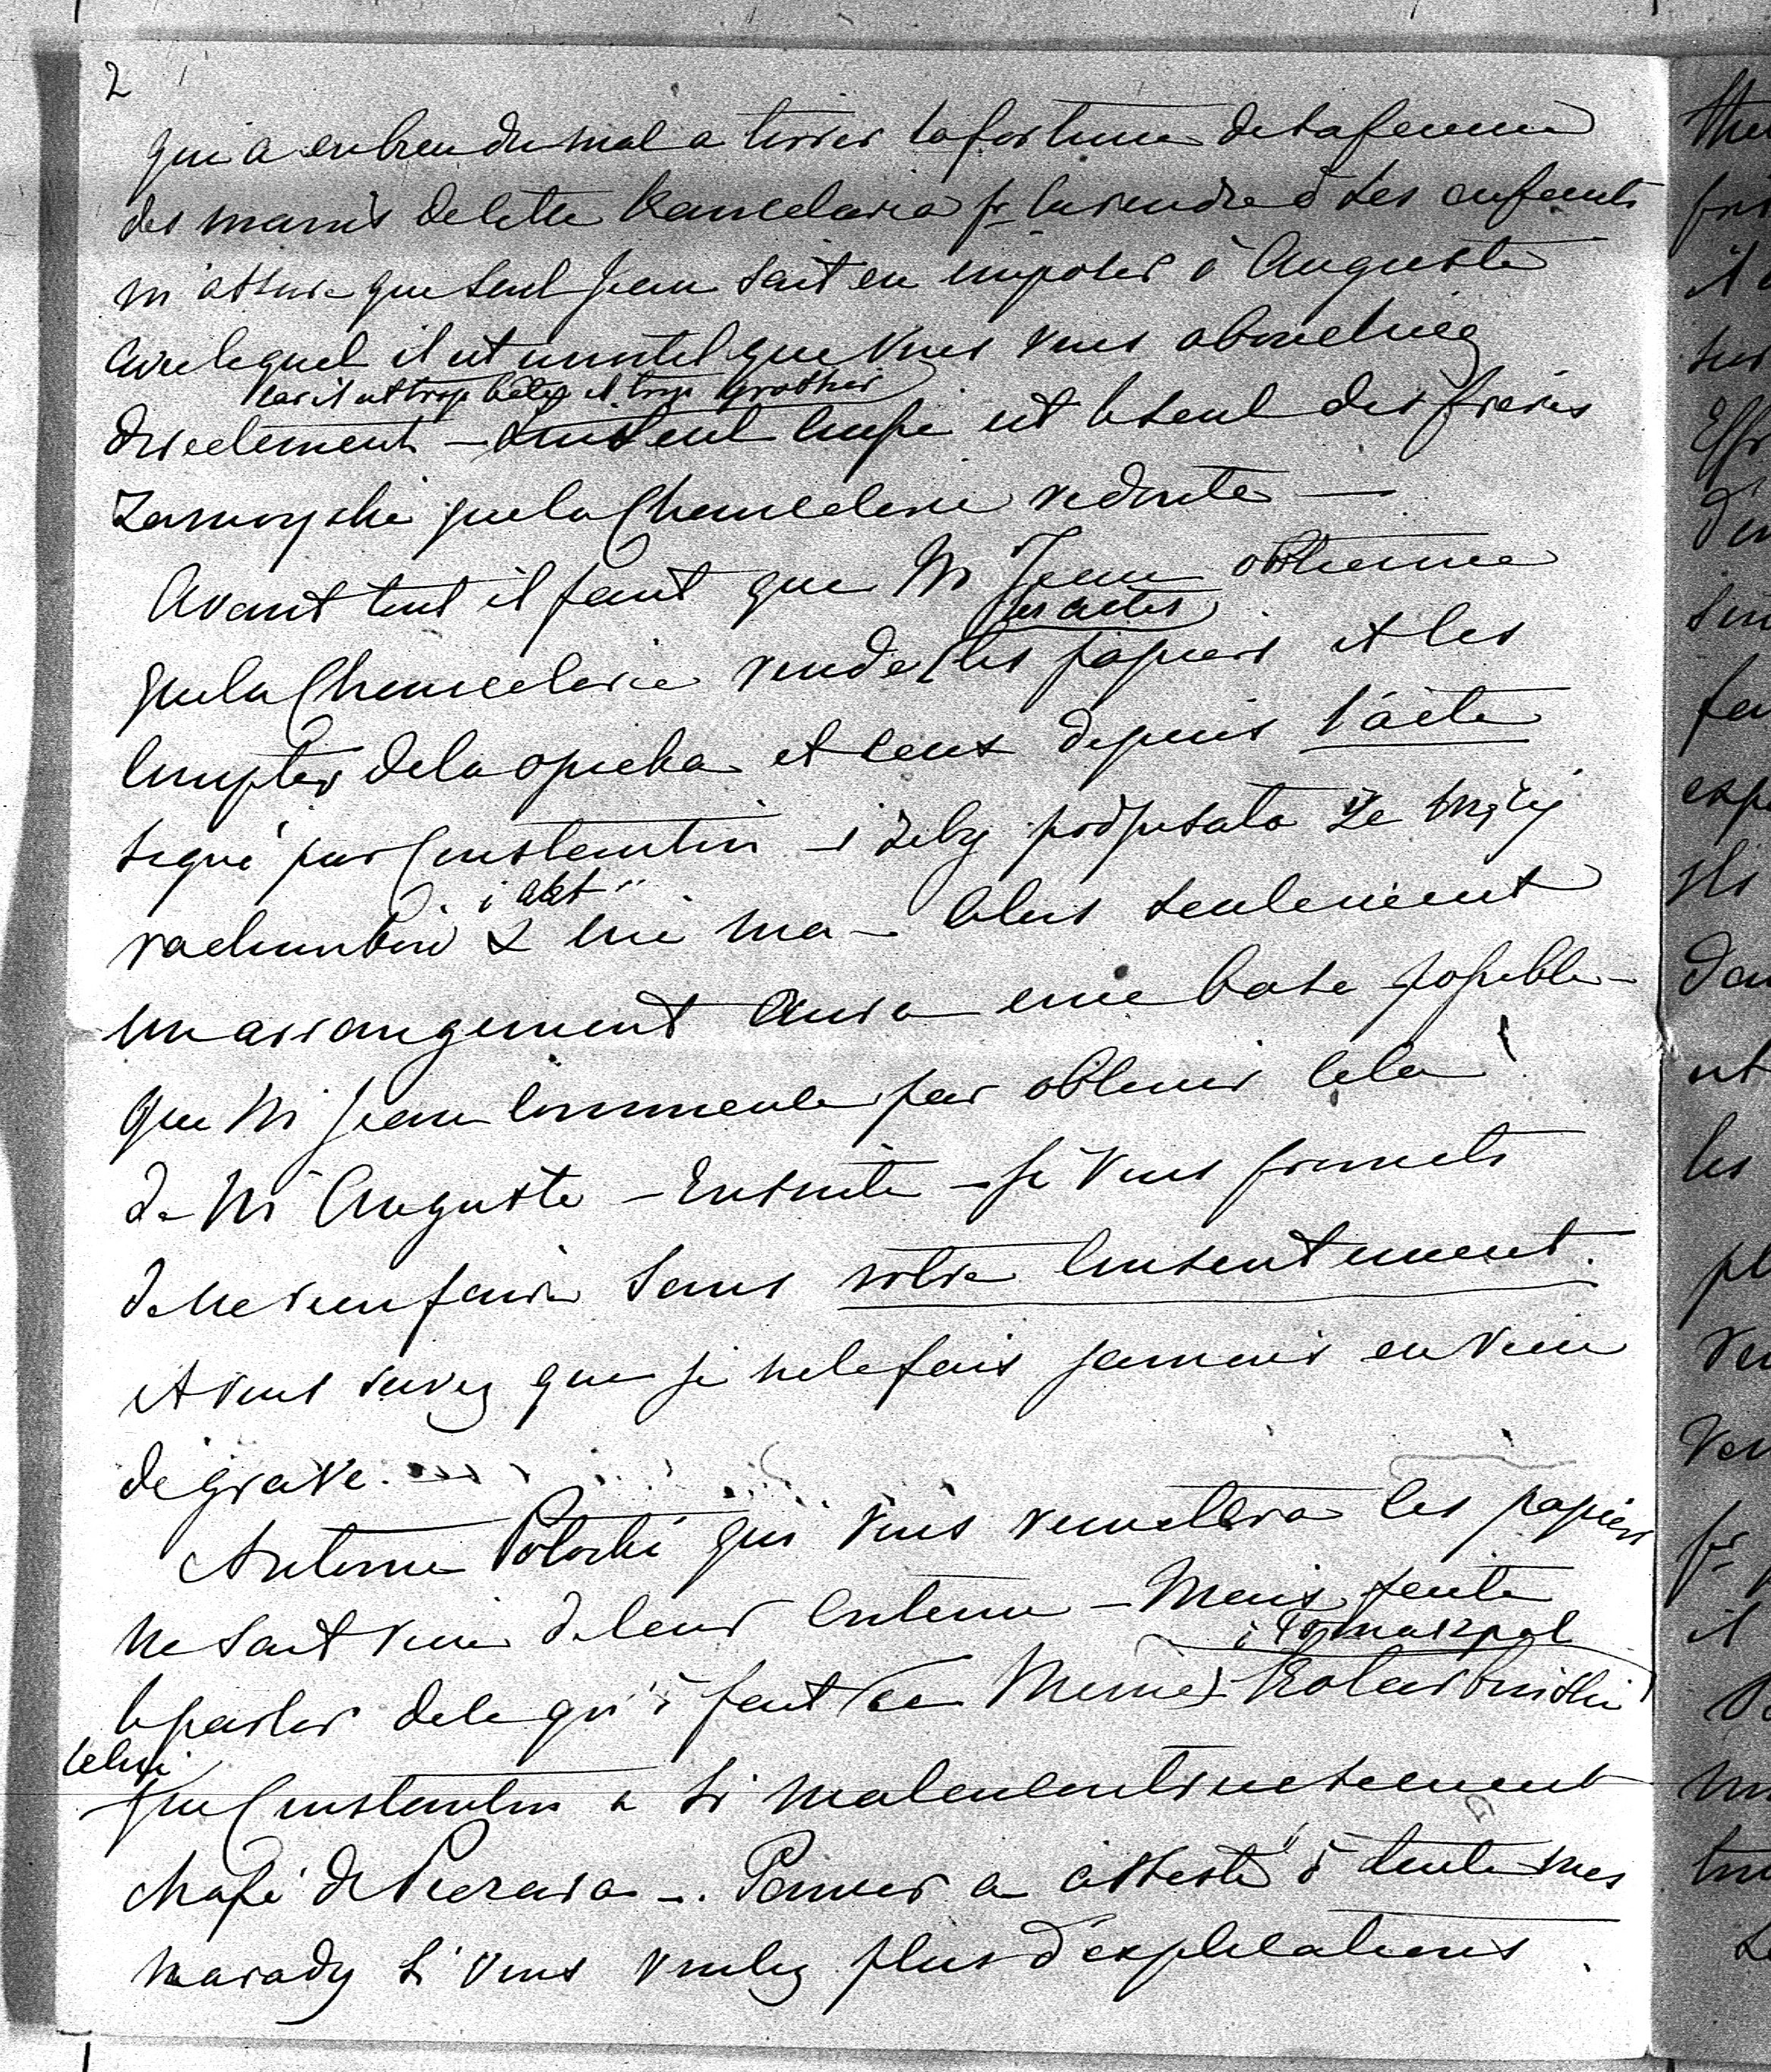 2
qui a eu bien du mal a tirer la fortune de sa femme
des mains de cette Kancelaria pr la rendre à ses enfants
m'assure que seul Jean sait en imposer à Auguste
avec lequel il est inutile que vous vous abouchiez
car il est trop bête et trop grossier
directement – est le seul des frères
Zamoyski que la Chancelerie redoute —
Avant tout il faut que Mr Jean obtienne
les actes
que la Chancelerie rende les papiers et les
comptes de la opieka et ceux depuis l'acte
signé par Constantin – i żeby podpisała że więcej
i akt
rachunków & nie ma – Alors seulement
un arrangement aura une base possible –
que Mr Jean commence par obtenir cela
de Mr Auguste – Ensuite – je vous promets
de ne rien faire sans votre consentement.
et vous savez que je ne le fais jamais en rien
de grave.
Antoine Potocki qui vous remettera les papiers
ne sait rien de leur contenu – Mais faite
i Tomaszpol
le parler de ce qu'à fait ce Même Kotarbinski
celui
que Constantin a si malencontreusement
chassé de Pieczara –. Panier a assisté à toute mes
narady si vous voulez plus d'explications.